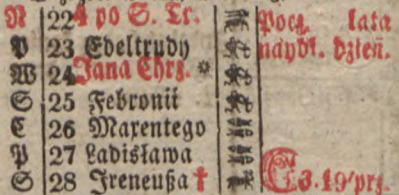 N 22 4 po S. Tr. Pocz. lata
P 23 Edeltrudy naydł. dzień.
W 24 Jana Chrz.
S 25 Febronii
C 26 Maxentego
P 27 Ladisława
S 28 Ireneußa † C 3. 19 prz.